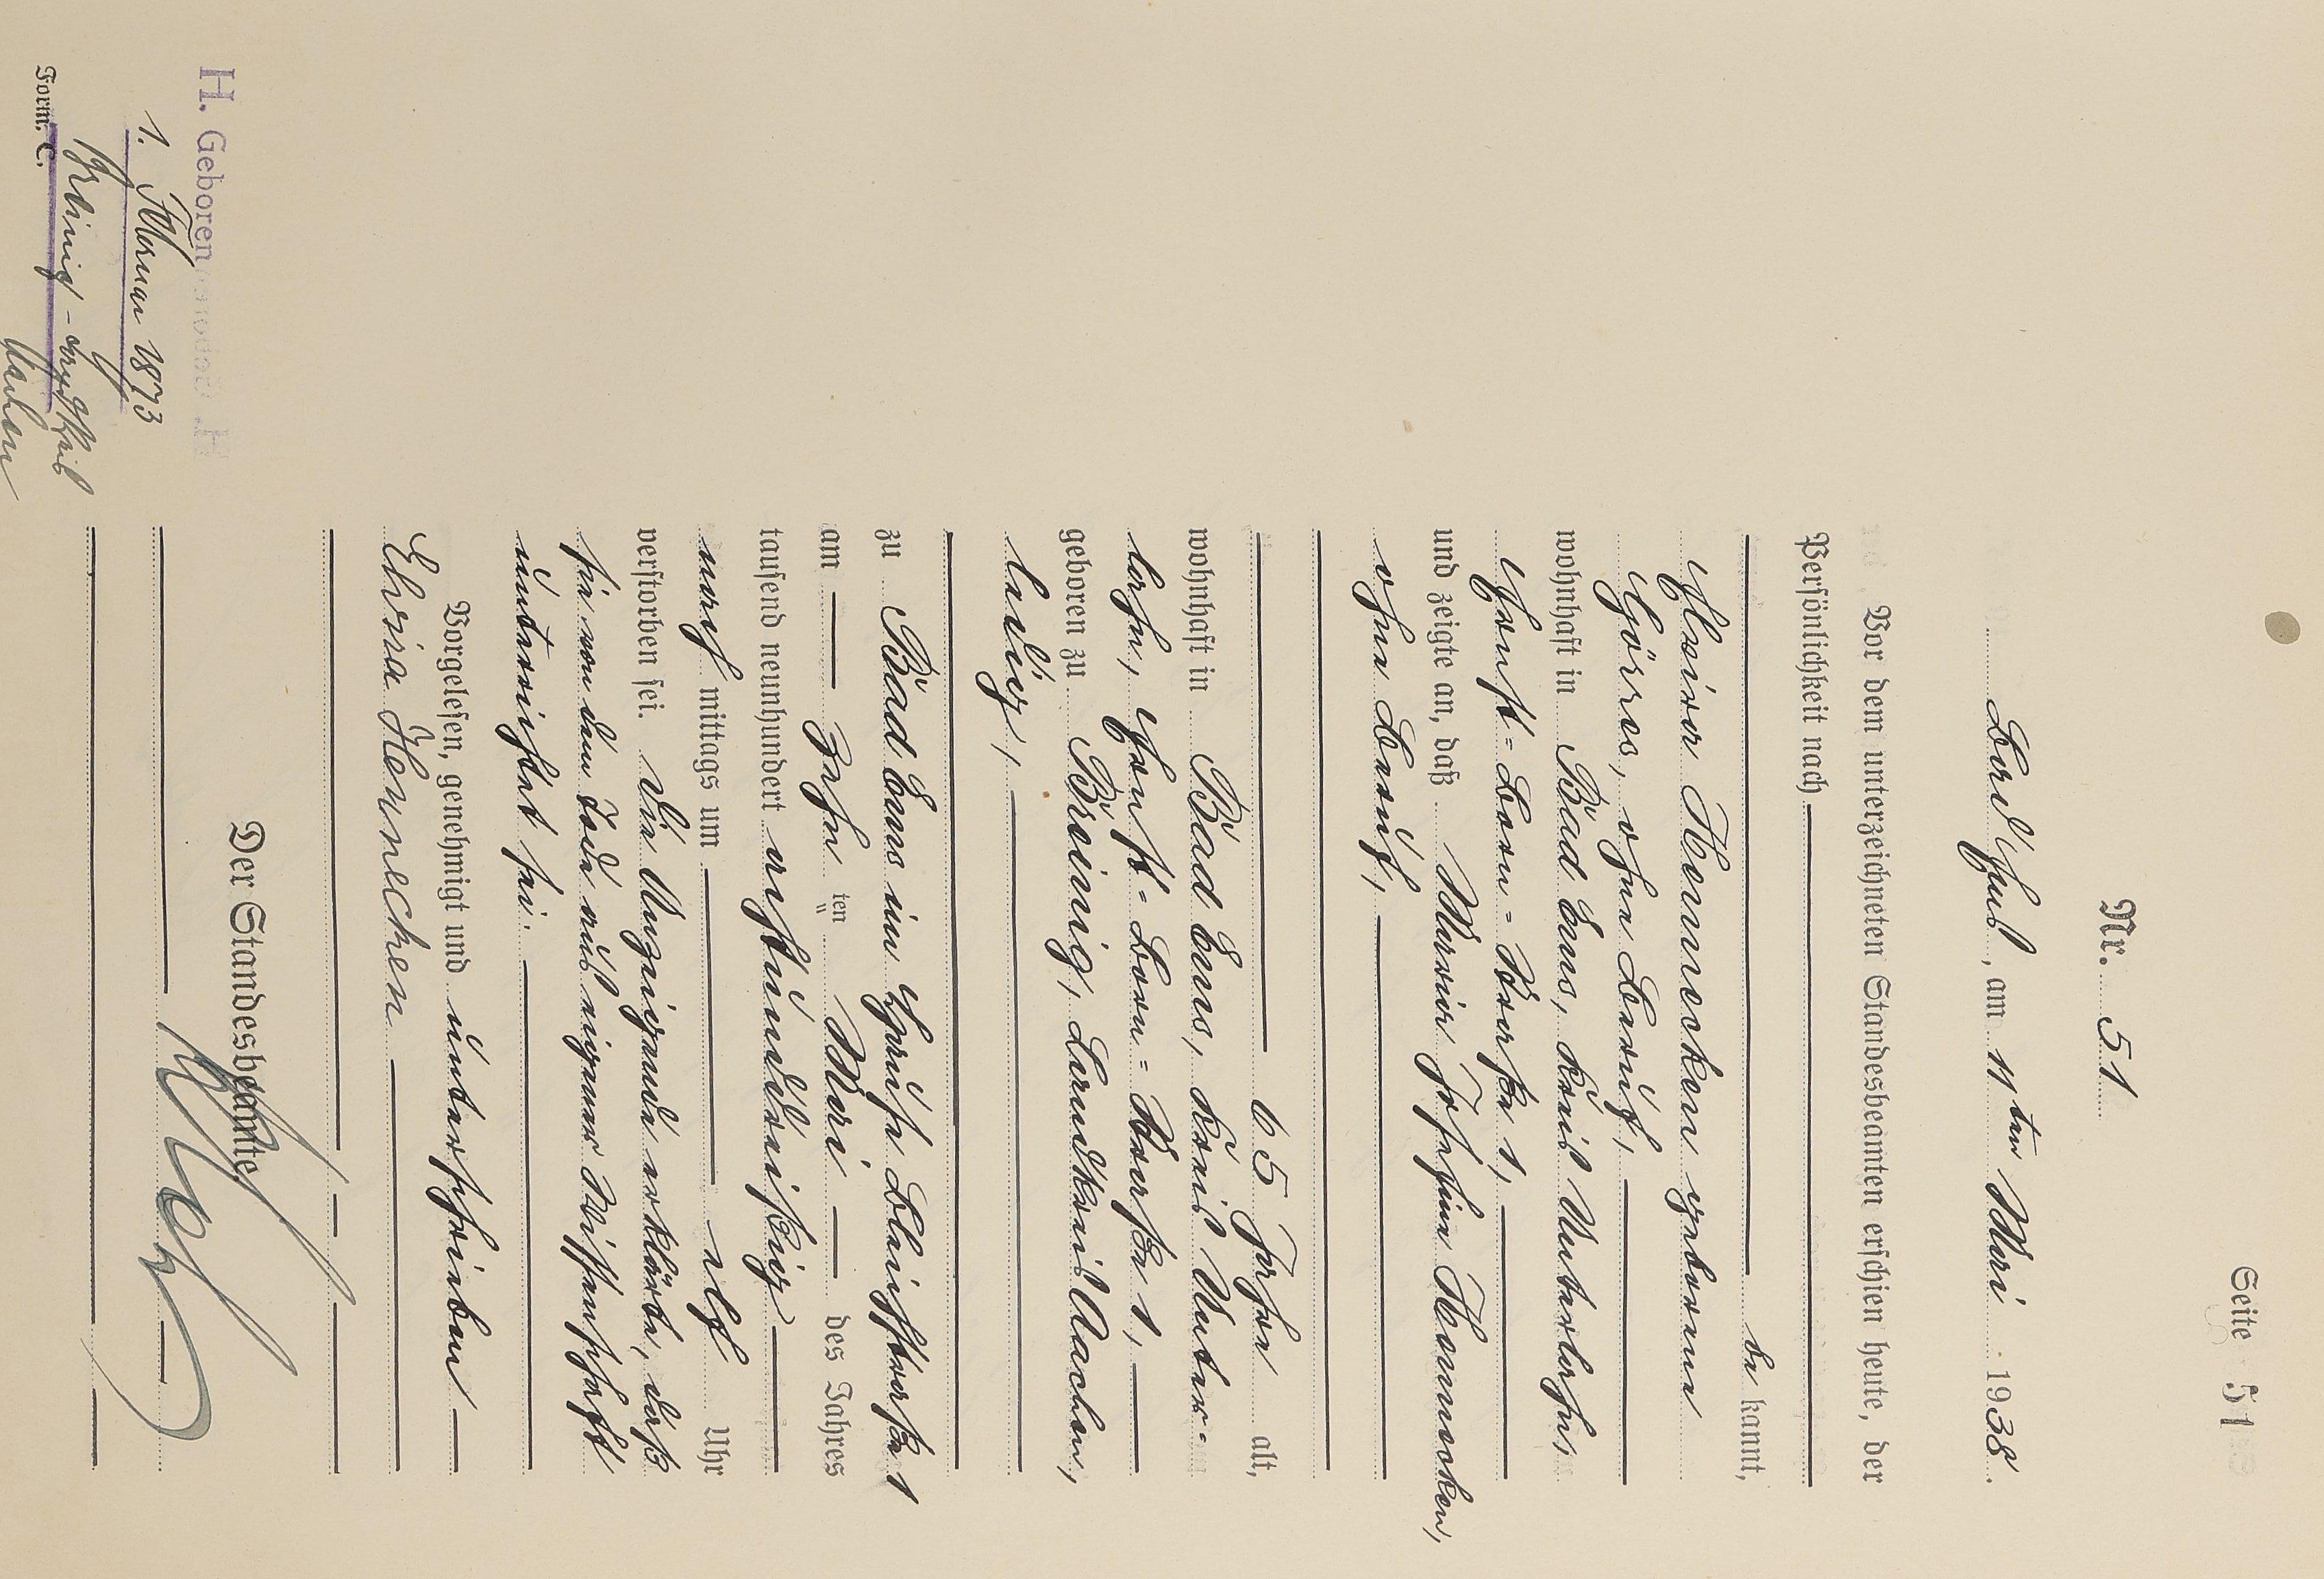 Seite 51
Nr. 51
Bad Ems, am 11ten Mai 1938.
Vor dem unterzeichneten Standesbeamten erschien heute, der
Persönlichkeit nach
be kannt,
Hennecken geborene
Görres, ohne Beruf,
wohnhaft in Bad Ems, Kreis Unterlahn,
Horst-Born-Straße 1,
und zeigte an, daß Maria Josefine Hennecken,
ohne Beruf,
65 Jahre alt,
wohnhaft in Bad Ems, Kreis Unter-
lahn, Horst-Born-Straße 1,
geboren zu Breinig, Landkreis Aachen,
ledig,
zu Bad Ems im Hause Bleichstraße 1
am zehnten Mai des Jahres
tausend neunhundert achtunddreißig
nach mittags um elf Uhr
verstorben sei. Die Anzeigende erklärte, daß
sie von dem Tode aus eigener Wissenschaft
unterrichtet sei.
Vorgelesen, genehmigt und unterschrieben
Hennecken
Der Standesbeamte
H. Geboren
1. Februar 1873
Breinig - Landkreis
Aachen
Form. C.